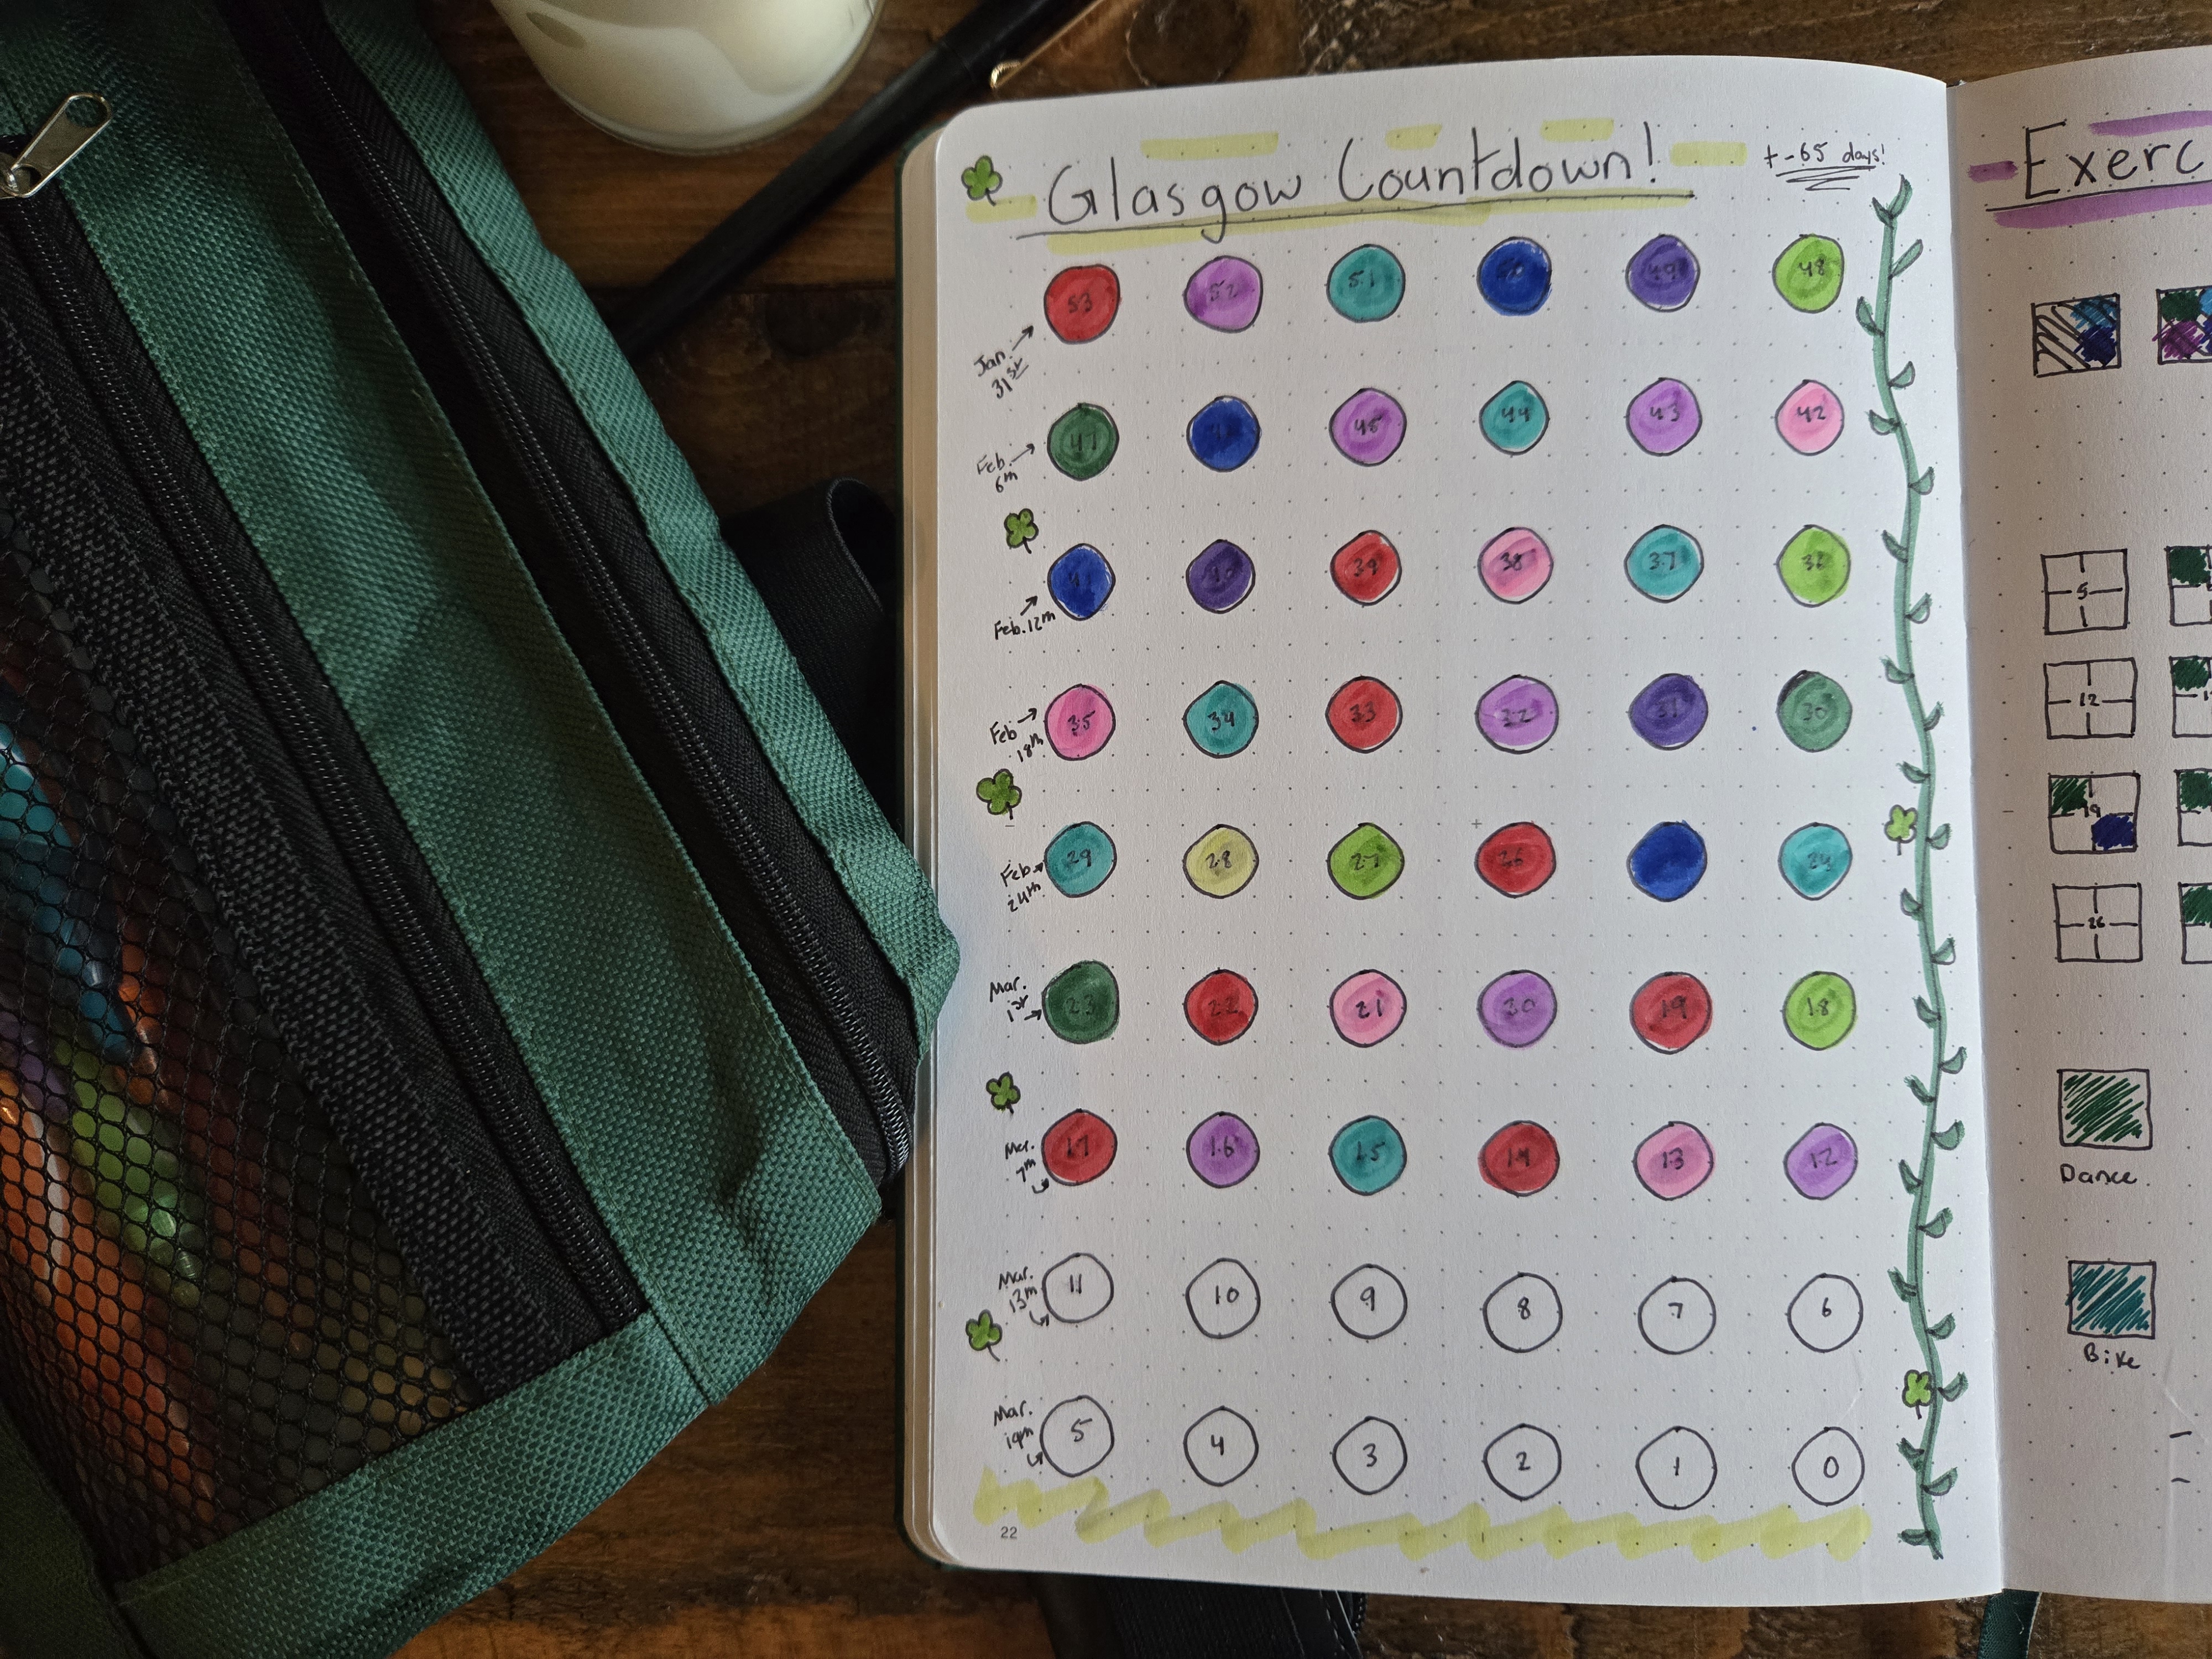 Glasgow Countdown!
+-65 days!
53 52 51 50 49 48
Jan. 31st
47 46 45 44 43 42
Feb. 6th
41 40 39 38 37 36
Feb. 12th
35 34 33 32 31 30
Feb 18th
29 28 27 26 24
Feb. 24th
23 22 21 30 19 18
Mar. 1st
17 16 15 14 13 12
Mar. 7th
11 10 9 8 7 6
Mar. 13th
5 4 3 2 1 0
Mar. 19th
22
Exerc
5
12
19
26
Dance
Bike